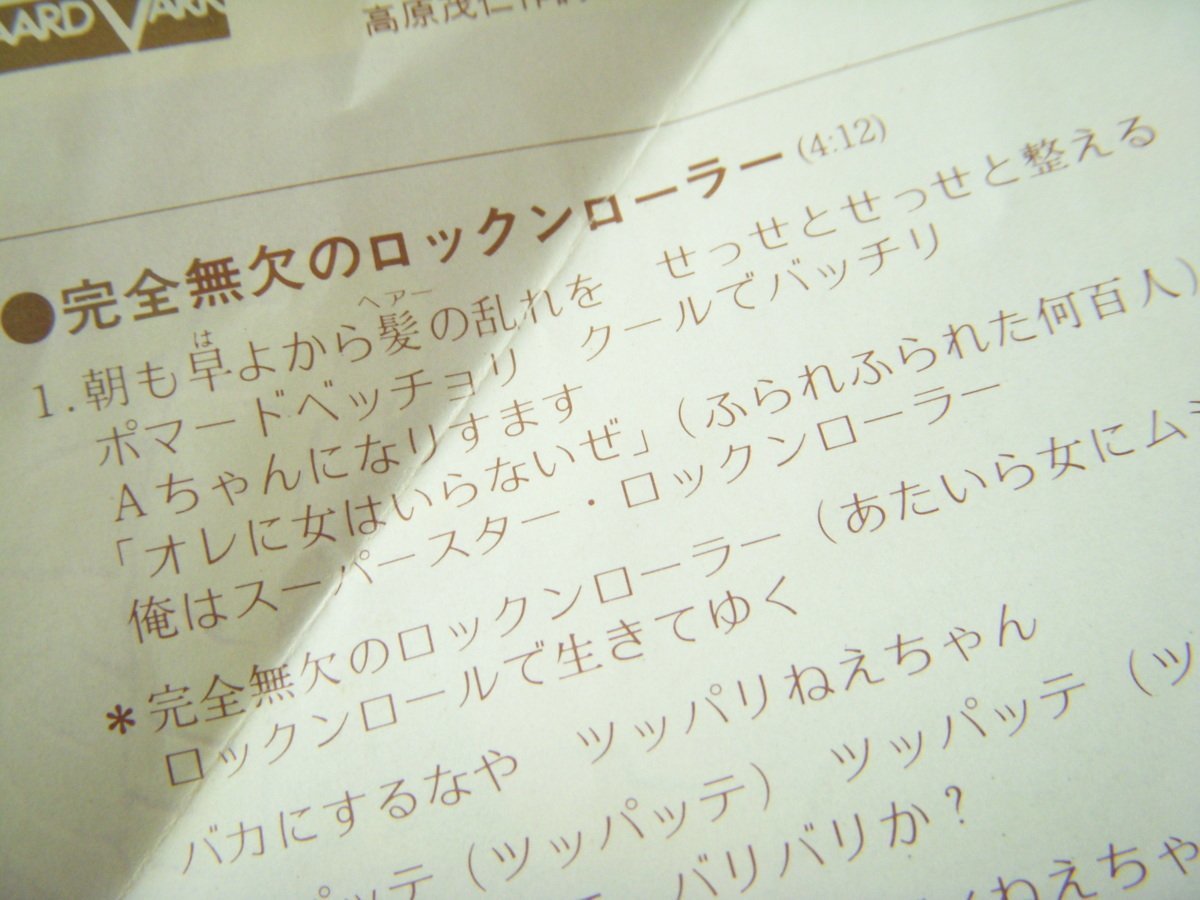 AARD VARK
高原茂仁作詞
●完全無欠のロックンローラー (4:12)
1.朝も早よから髪の乱れを　せっせとせっせと整える
は
ヘアー
ポマードベッチョリ　クールでバッチリ
Aちゃんになりすます
「オレに女はいらないぜ」（ふられふられた何百人）
俺はスーパースター・ロックンローラー
*完全無欠のロックンローラー（あたいら女にム
ロックンロールで生きてゆく
バカにするなや　ツッパリねえちゃん
パッテ（ツッパッテ）　ツッパッテ（ツ
バリバリか？
ねえちゃ